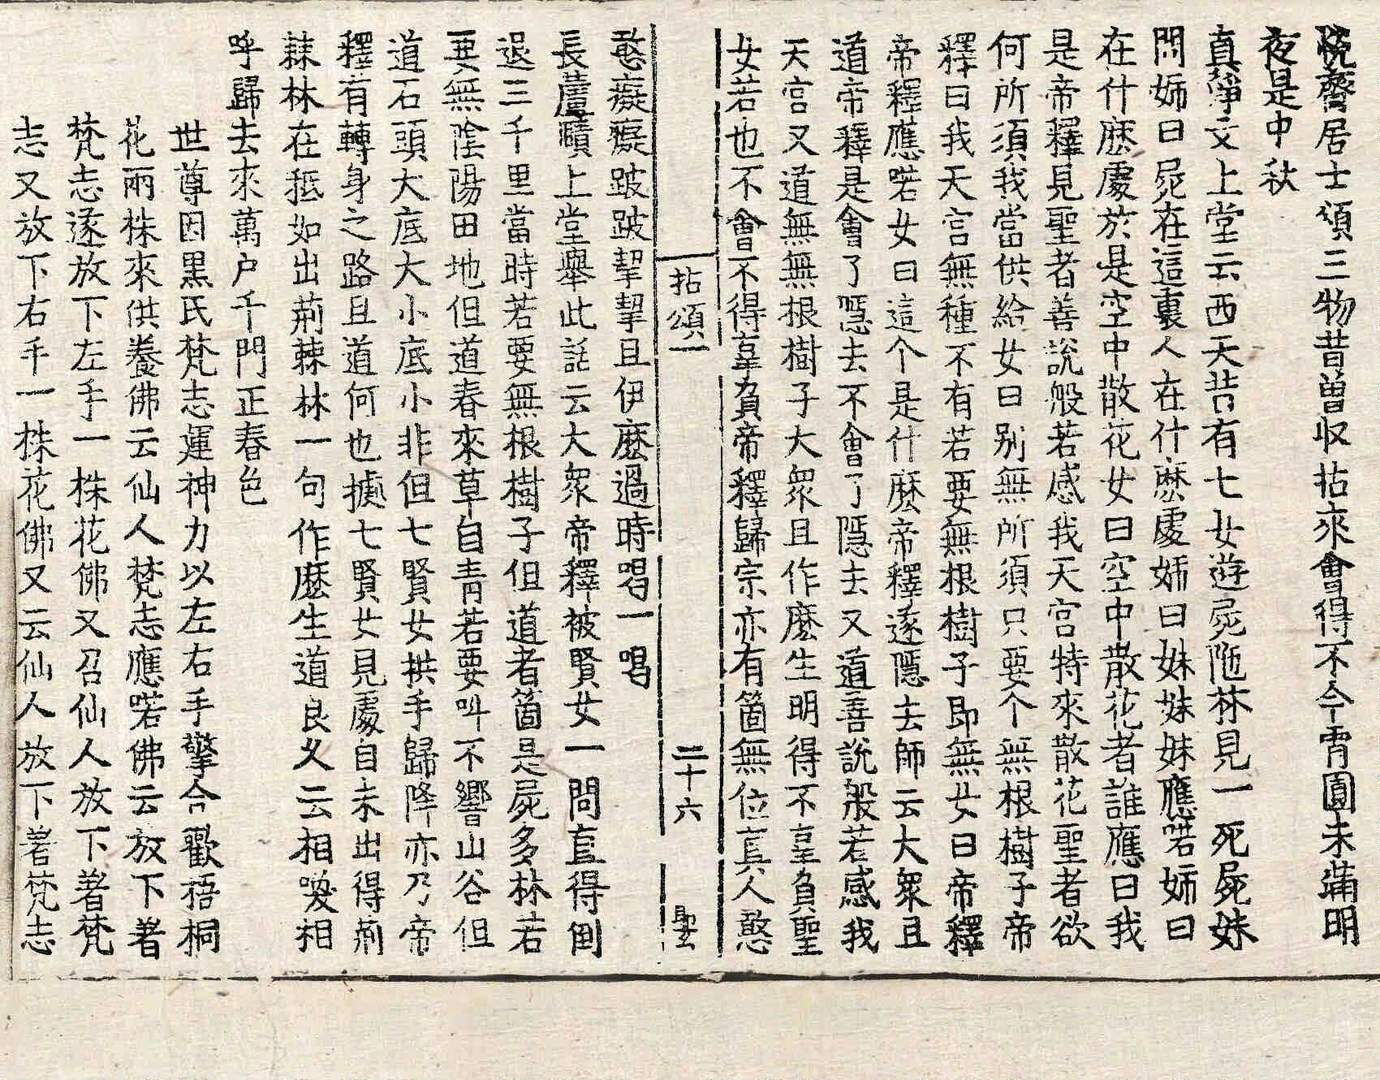 悅齋居士頌三物昔曽収拈来會得不今宵圓未蒲明
夜是中秋
真淨文上堂云西天昔有七女遊屍陁林見一死屍妹
問姉曰屍在這裏人在什麽處姉曰妹妹妹應喏姉曰
在什麽處於是空中散花女曰空中散花者誰應曰我
是帝釋見聖者善說般若感我天宫特來散花聖者欲
何所須我當供給女曰别無所須只要个無根樹子帝
釋曰我天宫無種不有若要無根樹子即無女曰帝釋
帝釋應喏女曰這个是什麽帝釋遂隱去師云大衆且
道帝釋是會了隱去不會了隱去又道善說般若感我
天宫又道無無根樹子大衆且作麽生明得不辜負聖
女若也不會不得辜負帝釋歸宗亦有箇無位真人憨
拈頌一 二十六 聖玄
憨癡癡跛跛挈挈且伊麽過時喝一喝
長蘆賾上堂舉此話云大衆帝釋被賢女一問直得倒
退三千里當時若要無根樹子但道者箇是屍多林若
要無陰陽田地但道春來草自青若要叫不響山谷但
道石頭大底大小底小非但七賢女拱手歸降亦乃帝
釋有轉身之路且道何也據七賢女見處自未出得荊
棘林在秪如出荊棘林一句作麽生道良久云相喚相
呼歸去來萬户千門正春色
世尊因黒氏梵志運神力以左右手擎合歡梧桐
花兩株來供養佛云仙人梵志應喏佛云放下著
梵志遂放下左手一株花佛又召仙人放下著梵
志又放下右手一株花佛又云仙人放下著梵志